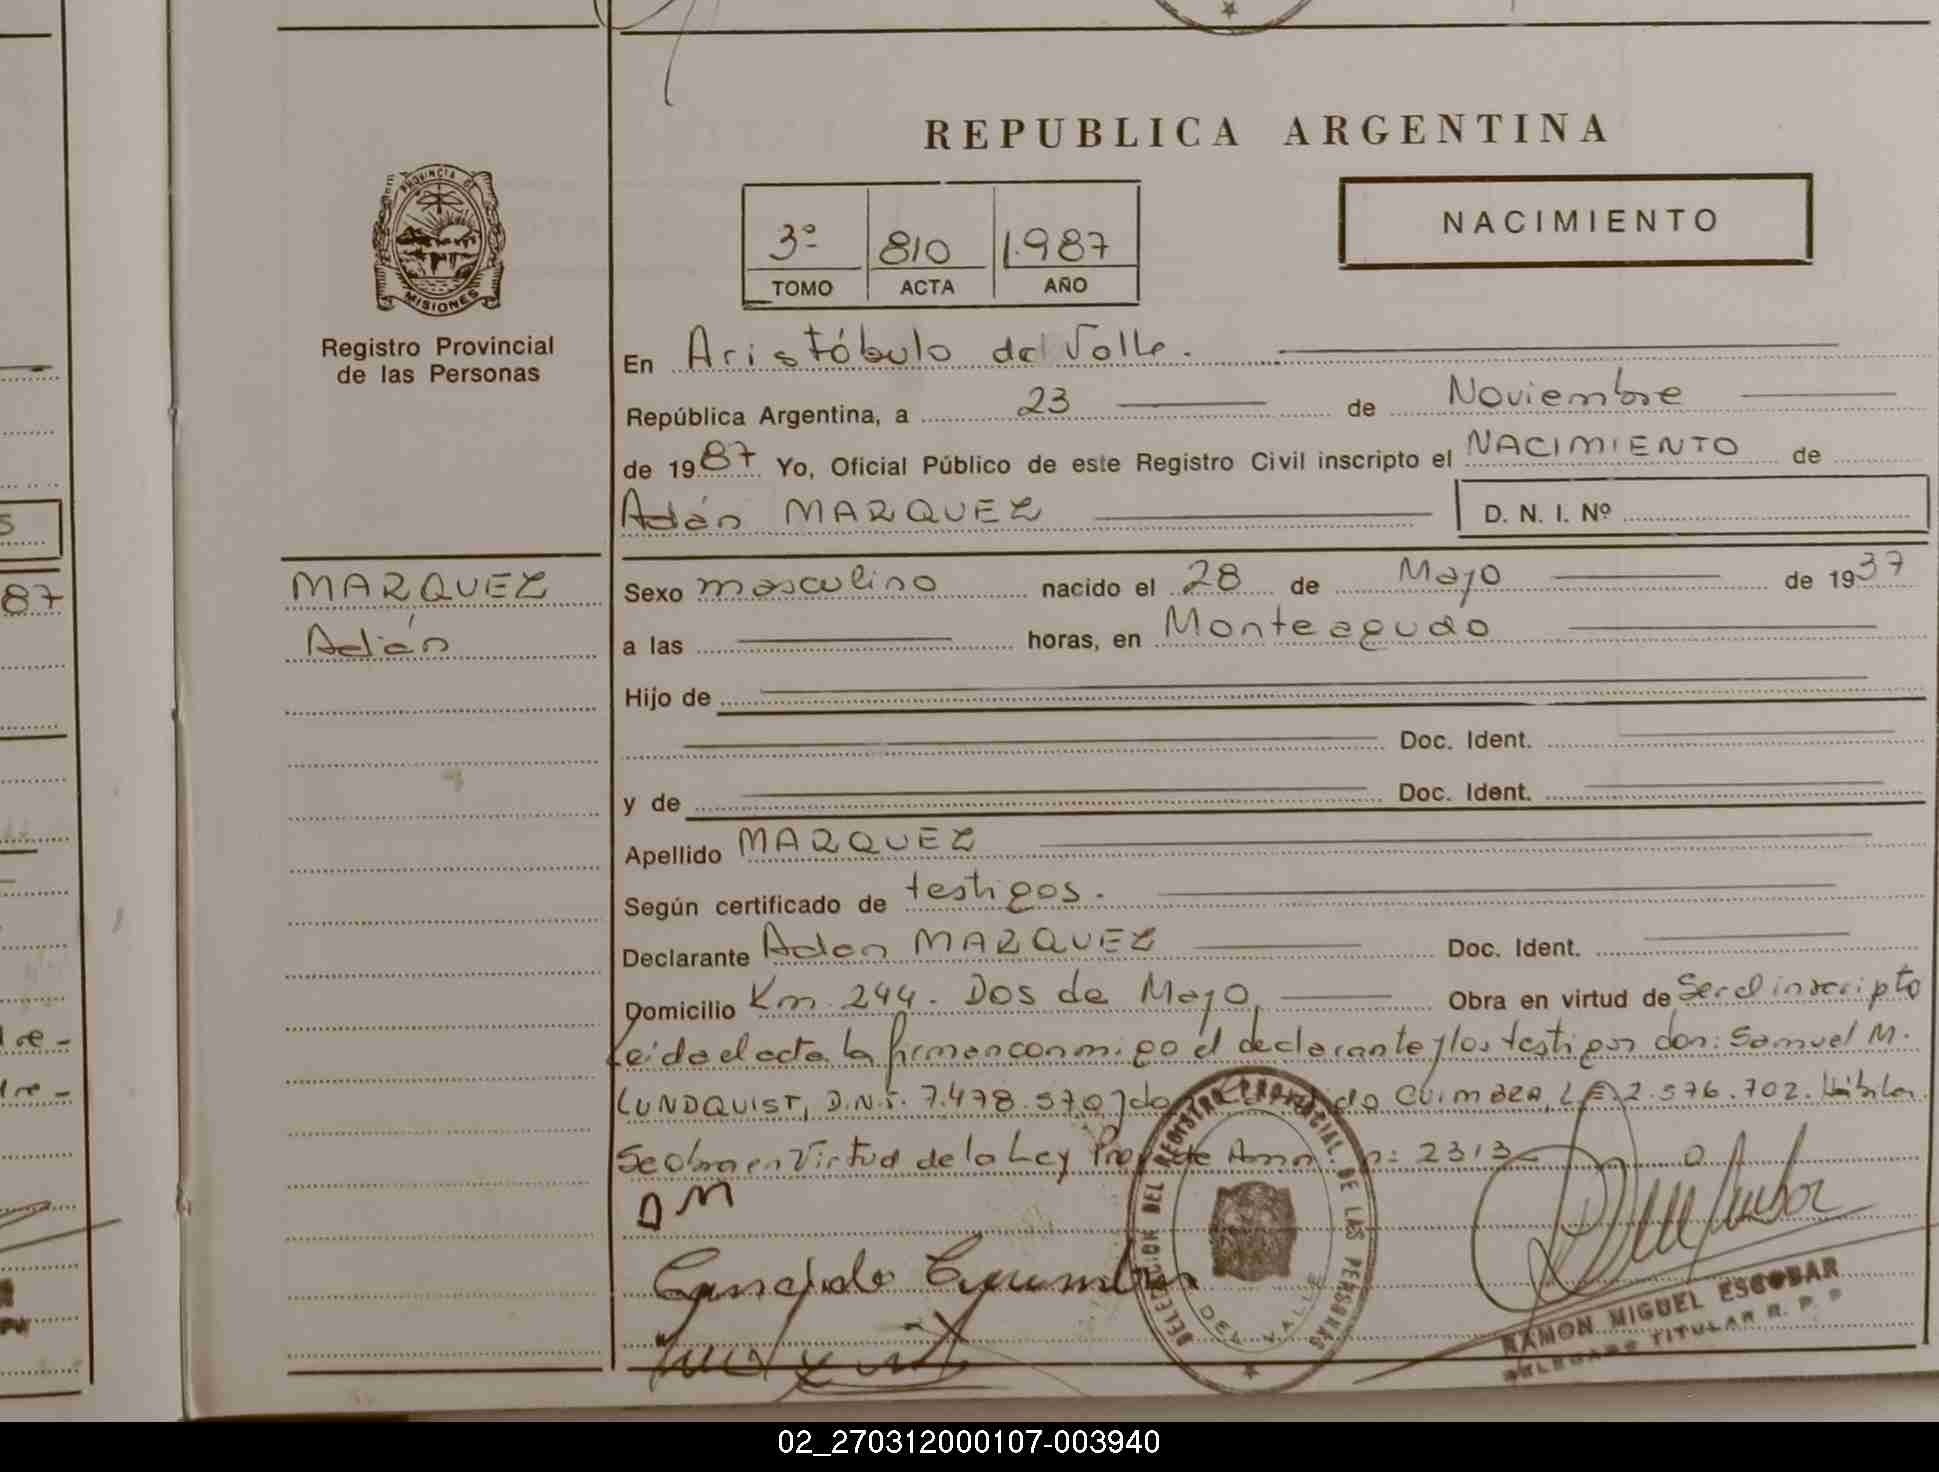 REPUBLICA ARGENTINA
PROVINCIA DE
MISIONES
Registro Provincial
de las Personas
3º 810 1.987
TOMO ACTA AÑO
NACIMIENTO
En Aristóbulo del Valle.
República Argentina, a 23 de Noviembre
de 1987 Yo, Oficial Público de este Registro Civil inscripto el NACIMIENTO de
Adán MARQUEZ D. N. I. Nº
MARQUEZ
Adán
Sexo masculino nacido el 28 de Mayo de 1937
a las horas, en Monteagudo
Hijo de
Doc. Ident.
y de Doc. Ident.
Apellido MARQUEZ
Según certificado de testigos.
Declarante Adan MARQUEZ Doc. Ident.
Domicilio Km. 244. Dos de Mayo, Obra en virtud de Ser el inscripto
Leida el acta la firman conmigo el declarante y los testigos don: Samuel M.
LUNDQUIST, D.N.I. 7.478.570 y do CUIMBRA, L.E. 2.576.702. Hábiles
Se Obra en Virtud de la Ley de Amn. n: 2313
DM
DELEGACION DEL REGISTRO PROVINCIAL DE LAS PERSONAS
DEL VALLE
RAMON MIGUEL ESCOBAR
DELEGADO TITULAR R. P. P
87
02_270312000107-003940